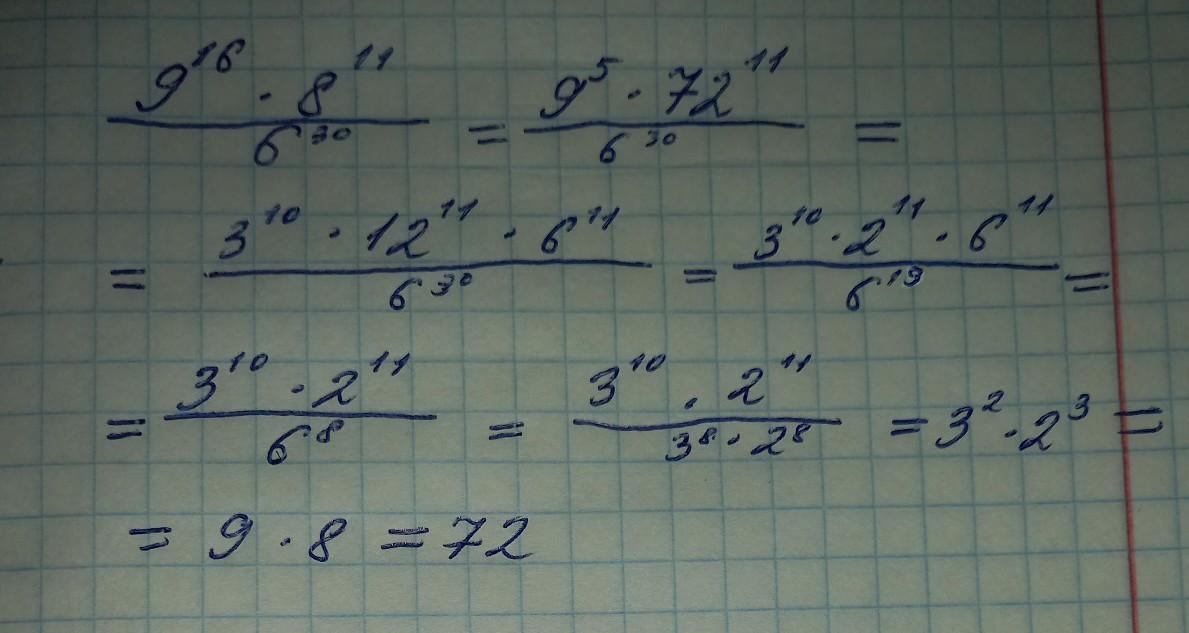 9^16 · 8^11 / 6^30 = 9^5 · 72^11 / 6^30 =
= 3^10 · 12^11 · 6^11 / 6^30 = 3^10 · 2^11 · 6^11 / 6^19 =
= 3^10 · 2^11 / 6^8 = 3^10 · 2^11 / 3^8 · 2^8 = 3^2 · 2^3 =
= 9 · 8 = 72